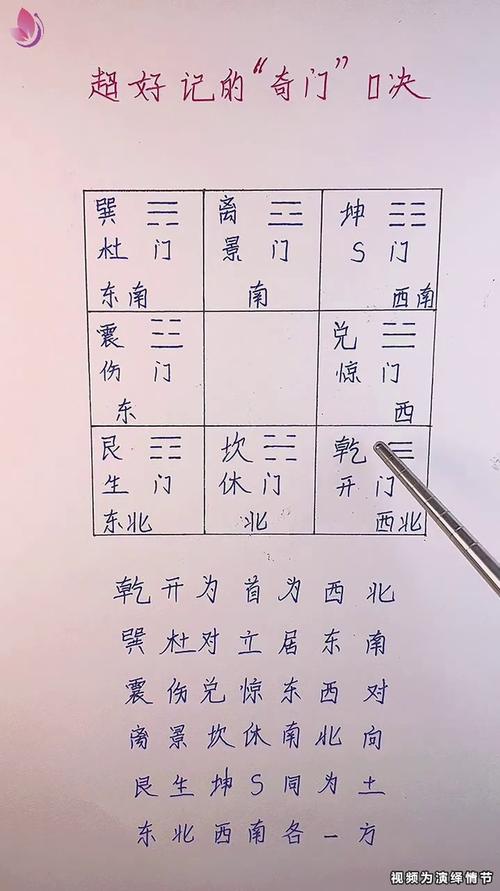 超好记的“奇门”口决
巽 ☴ 离 ☲ 坤 ☷
杜 门 景 门 S 门
东南 南 西南
震 ☳ 兑 ☱
伤 门 惊 门
东 西
艮 ☶ 坎 ☵ 乾 ☰
生 门 休 门 开 门
东北 北 西北
乾开为首为西北
巽杜对立居东南
震伤兑惊东西对
离景坎休南北向
艮生坤S同为土
东北西南各一方
视频为演绎情节